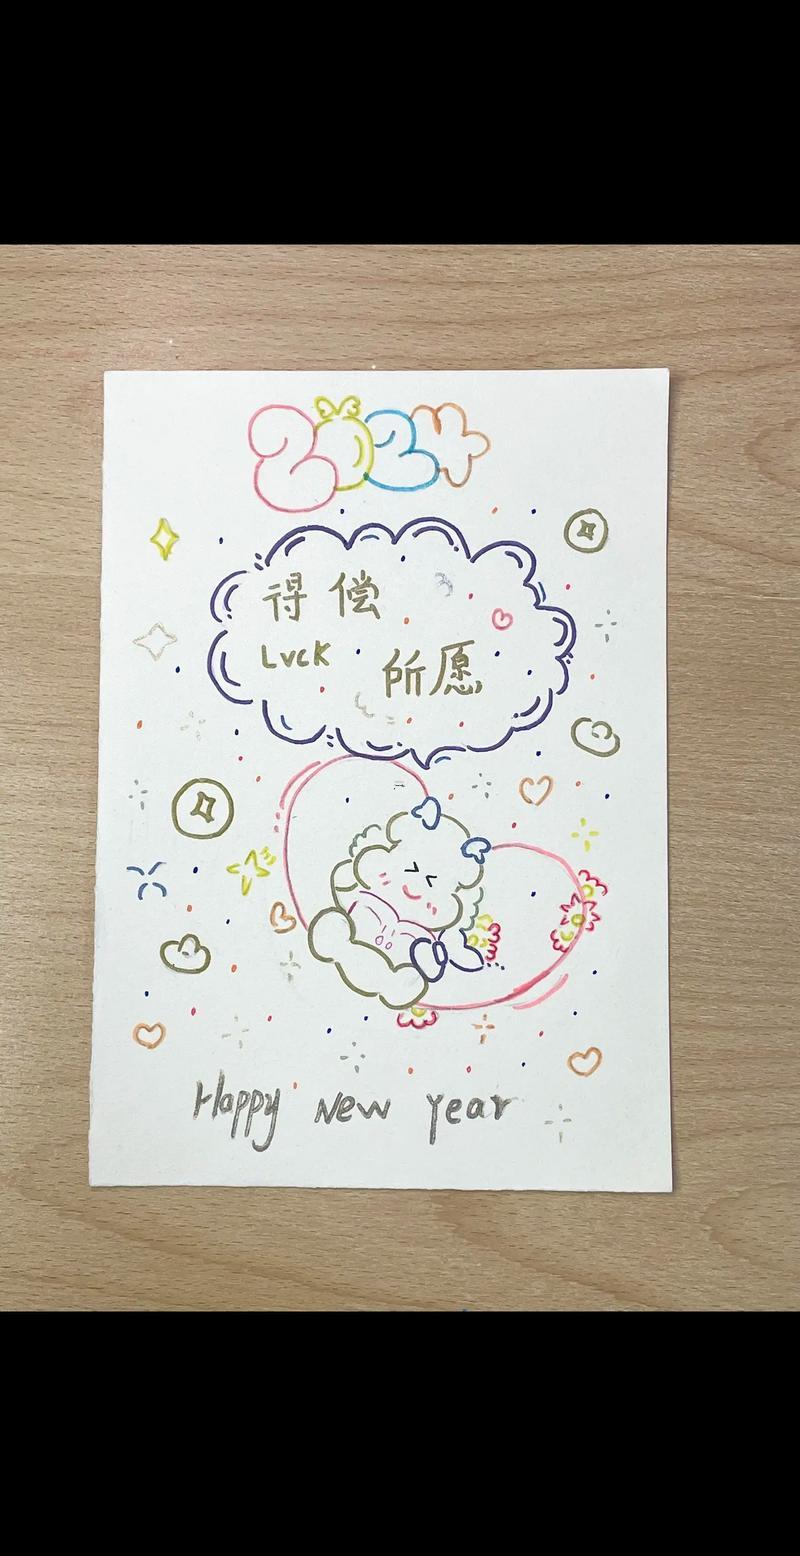 2024
得偿
LvcK
所愿
Happy New Year